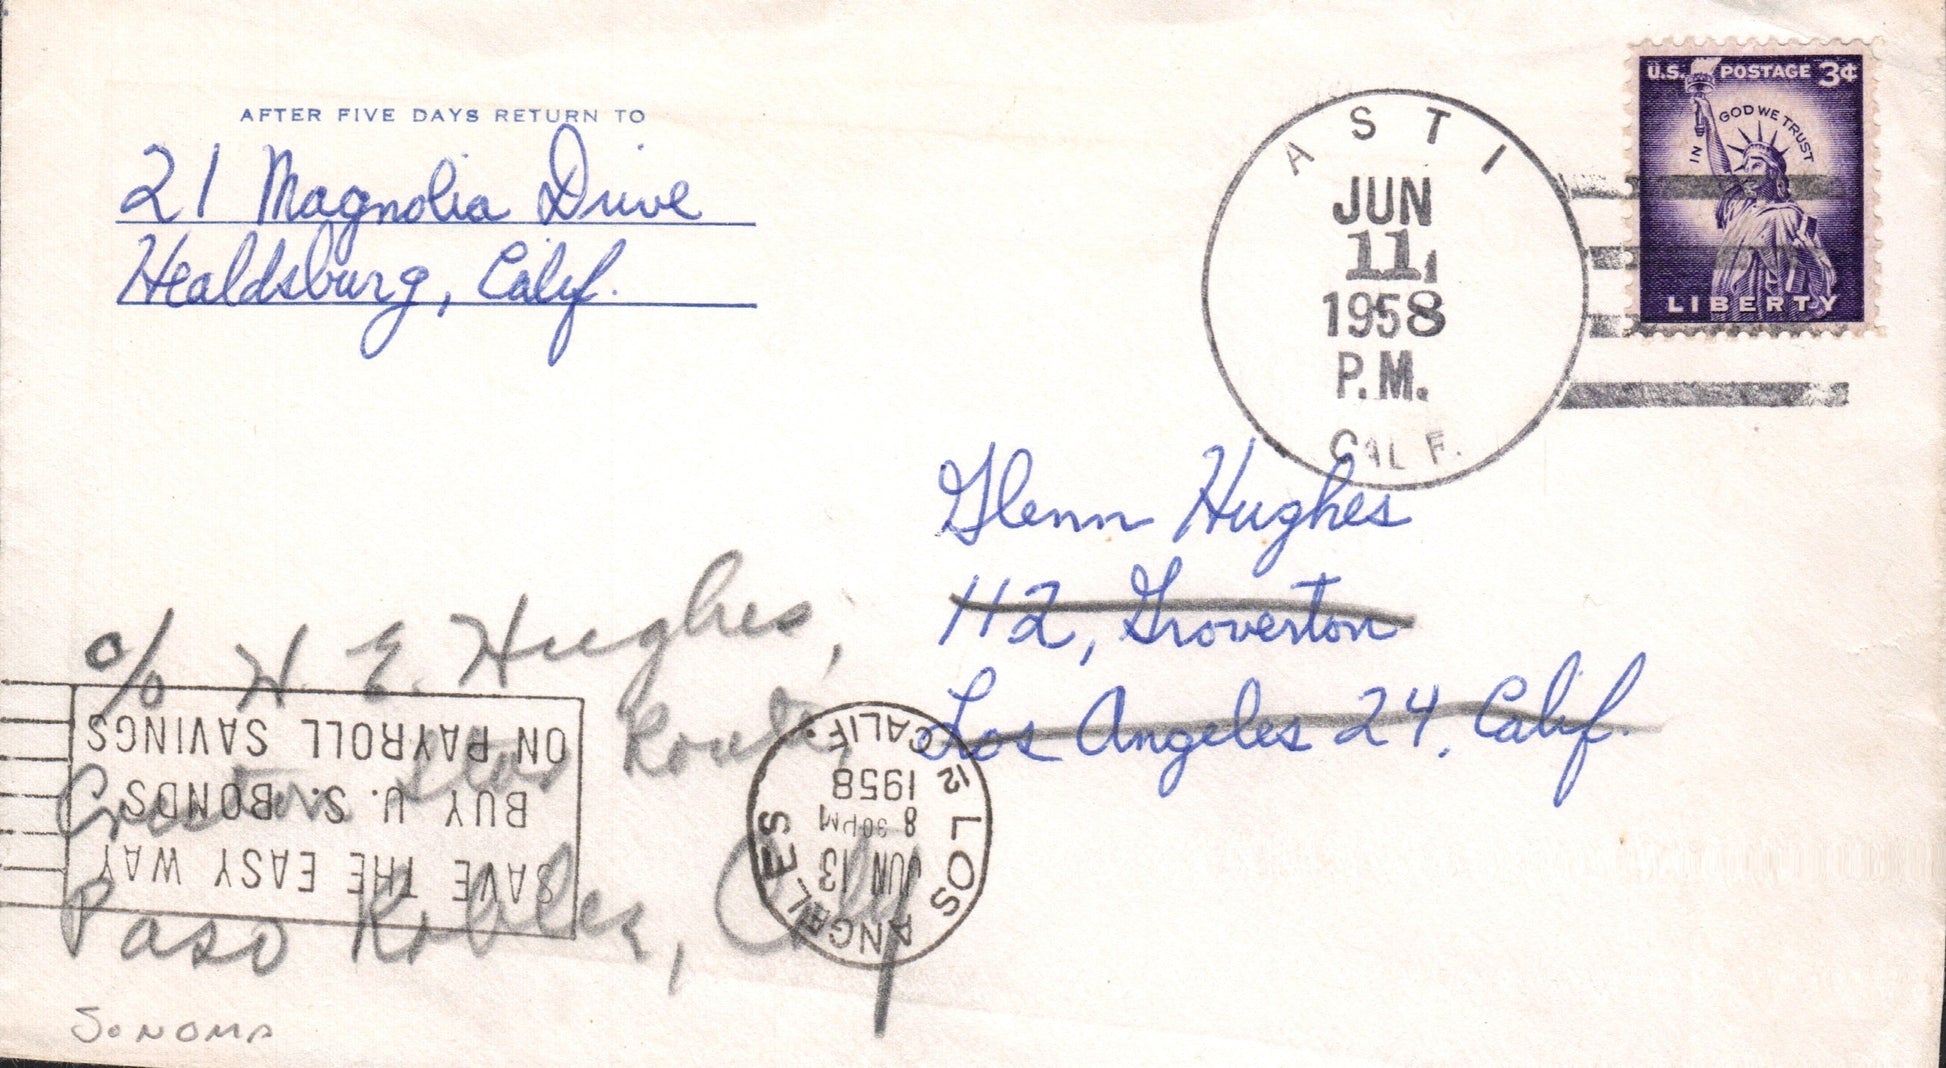 AFTER FIVE DAYS RETURN TO
21 Magnolia Drive
Healdsburg, Calif.
U.S. POSTAGE 3¢
IN GOD WE TRUST
LIBERTY
ASTI
JUN
11
1958
P.M.
CALIF.
Glenn Hughes
112, Groverton
Los Angeles 24, Calif.
c/o H. E. Hughes,
Creston Star Route,
Paso Robles, Calif
SAVE THE EASY WAY
BUY U. S. BONDS
ON PAYROLL SAVINGS
LOS ANGELES
12 CALIF.
JUN 13
8 30PM
1958
SONOMA